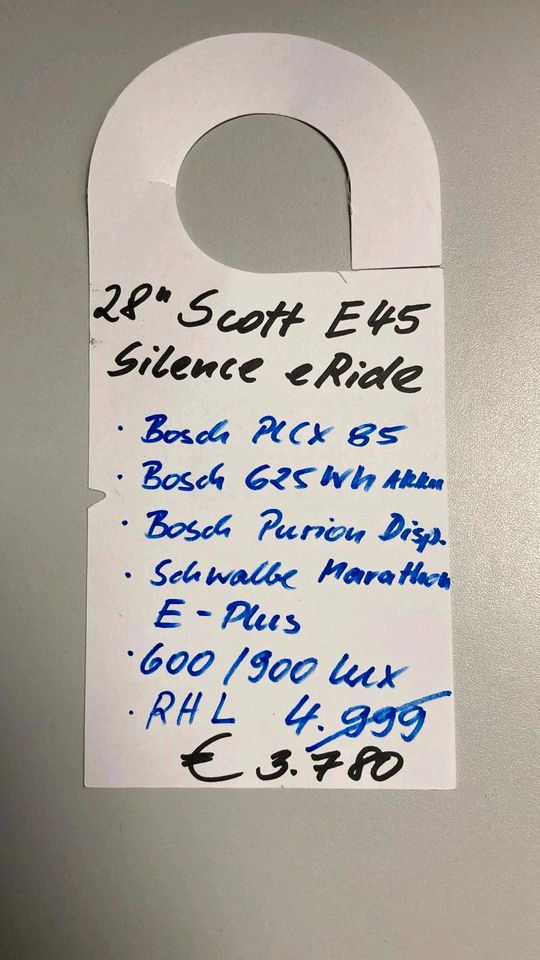 28" Scott E45
Silence eRide
· Bosch PLCX 85
· Bosch 625Wh Akku
· Bosch Purion Disp.
· Schwalbe Marathon
E-Plus
· 600/900 lux
· RHL 4.999
€ 3.780